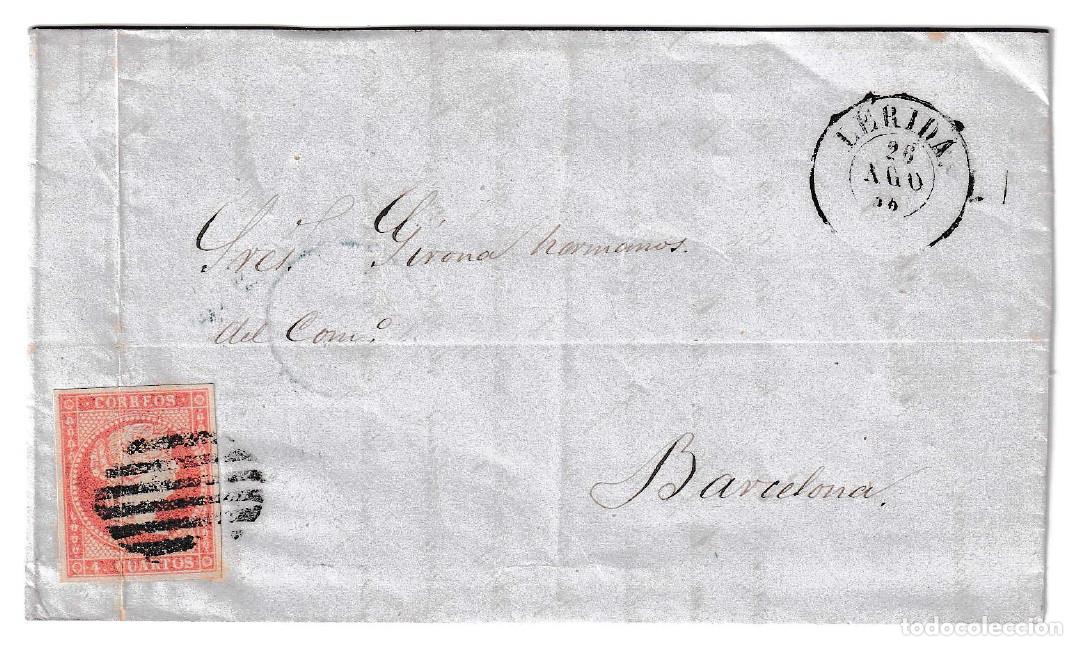 LÉRIDA.
26
AGO
56
Sres. Girona hermanos.
del Comº.
Barcelona.
CORREOS
4 CUARTOS
todocoleccion